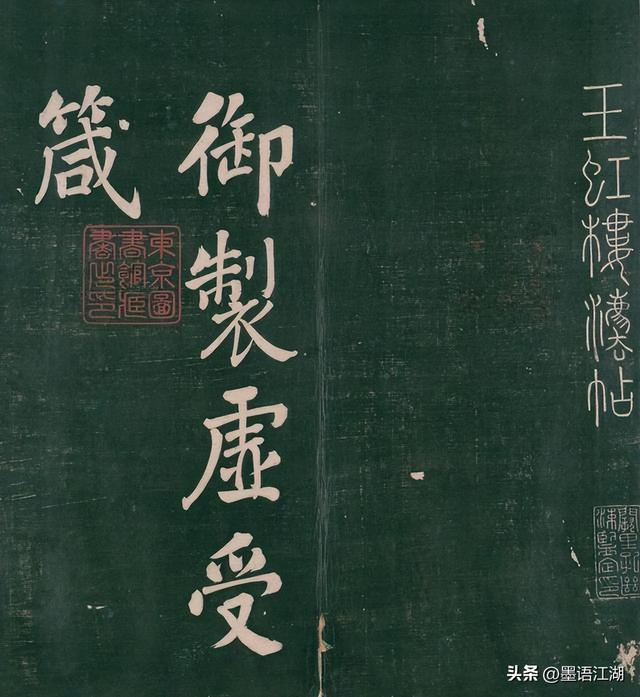 王虹樓灋帖
御製虛受
箴
東京圖
書館藏
書之印
头条 @墨语江湖